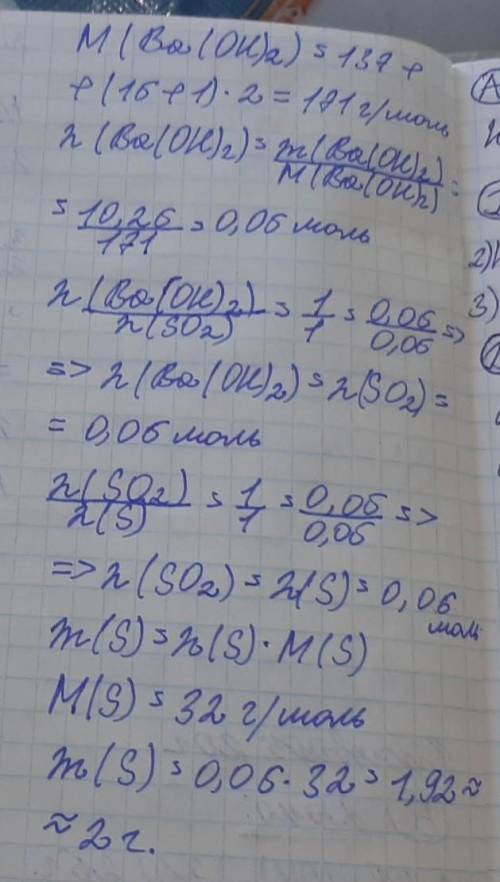 M(Ba(OH)₂) = 137 +
+(16+1)·2 = 171 г/моль
n(Ba(OH)₂) = m(Ba(OH)₂)/M(Ba(OH)₂) =
= 10,26/171 = 0,06 моль
n(Ba(OH)₂)/n(SO₂) = 1/1 = 0,06/0,06 =>
=> n(Ba(OH)₂) = n(SO₂) =
= 0,06 моль
n(SO₂)/n(S) = 1/1 = 0,06/0,06 =>
=> n(SO₂) = n(S) = 0,06
моль
m(S) = n(S)·M(S)
M(S) = 32 г/моль
m(S) = 0,06·32 = 1,92 ≈
≈ 2 г.
2)
3)